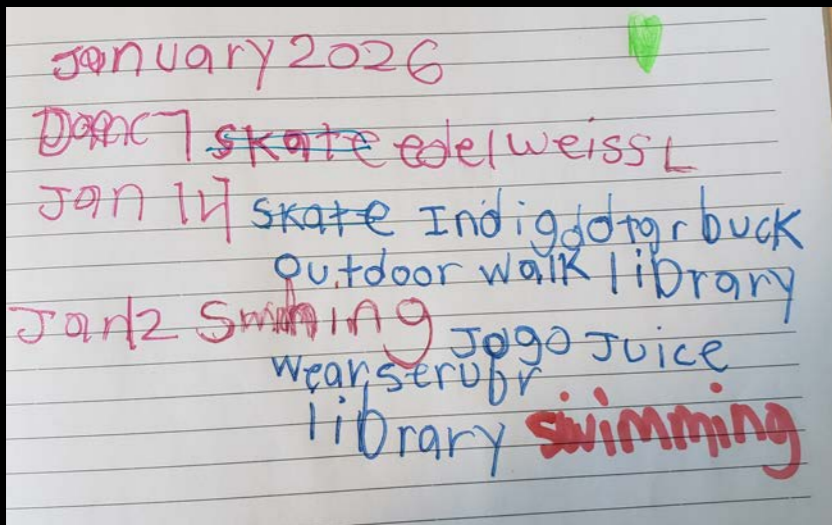 January 2026
7 skate edelweiss L
Jan 14 skate Indigo buck
outdoor walk library
Jan 2 Swimming Jogo Juice
wear
library swimming